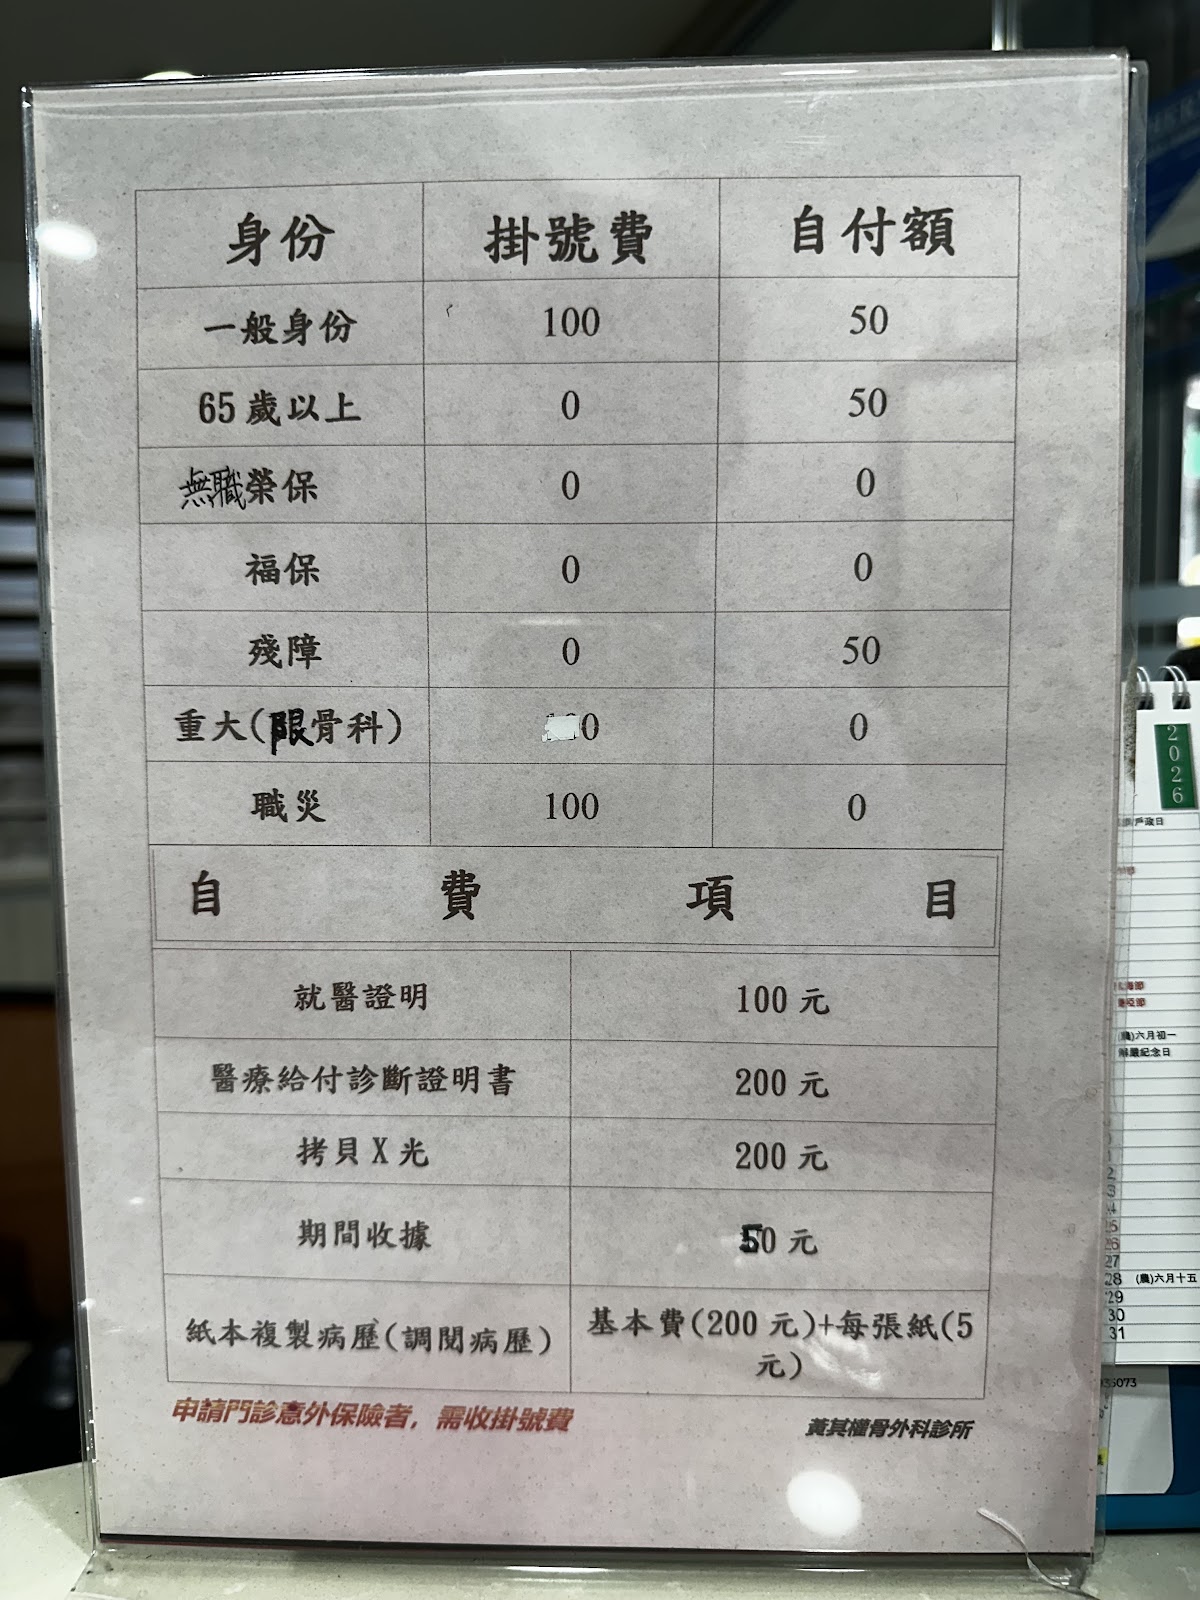 身份 掛號費 自付額
一般身份 100 50
65歲以上 0 50
無職榮保 0 0
福保 0 0
殘障 0 50
重大(限骨科) 0 0
職災 100 0
自費項目
就醫證明 100元
醫療給付診斷證明書 200元
拷貝X光 200元
期間收據 50元
紙本複製病歷(調閱病歷) 基本費(200元)+每張紙(5
元)
申請門診意外保險者，需收掛號費
黃其權骨外科診所
2026
戶政日
(農)六月初一
解嚴紀念日
27
28 (農)六月十五
29
30
31